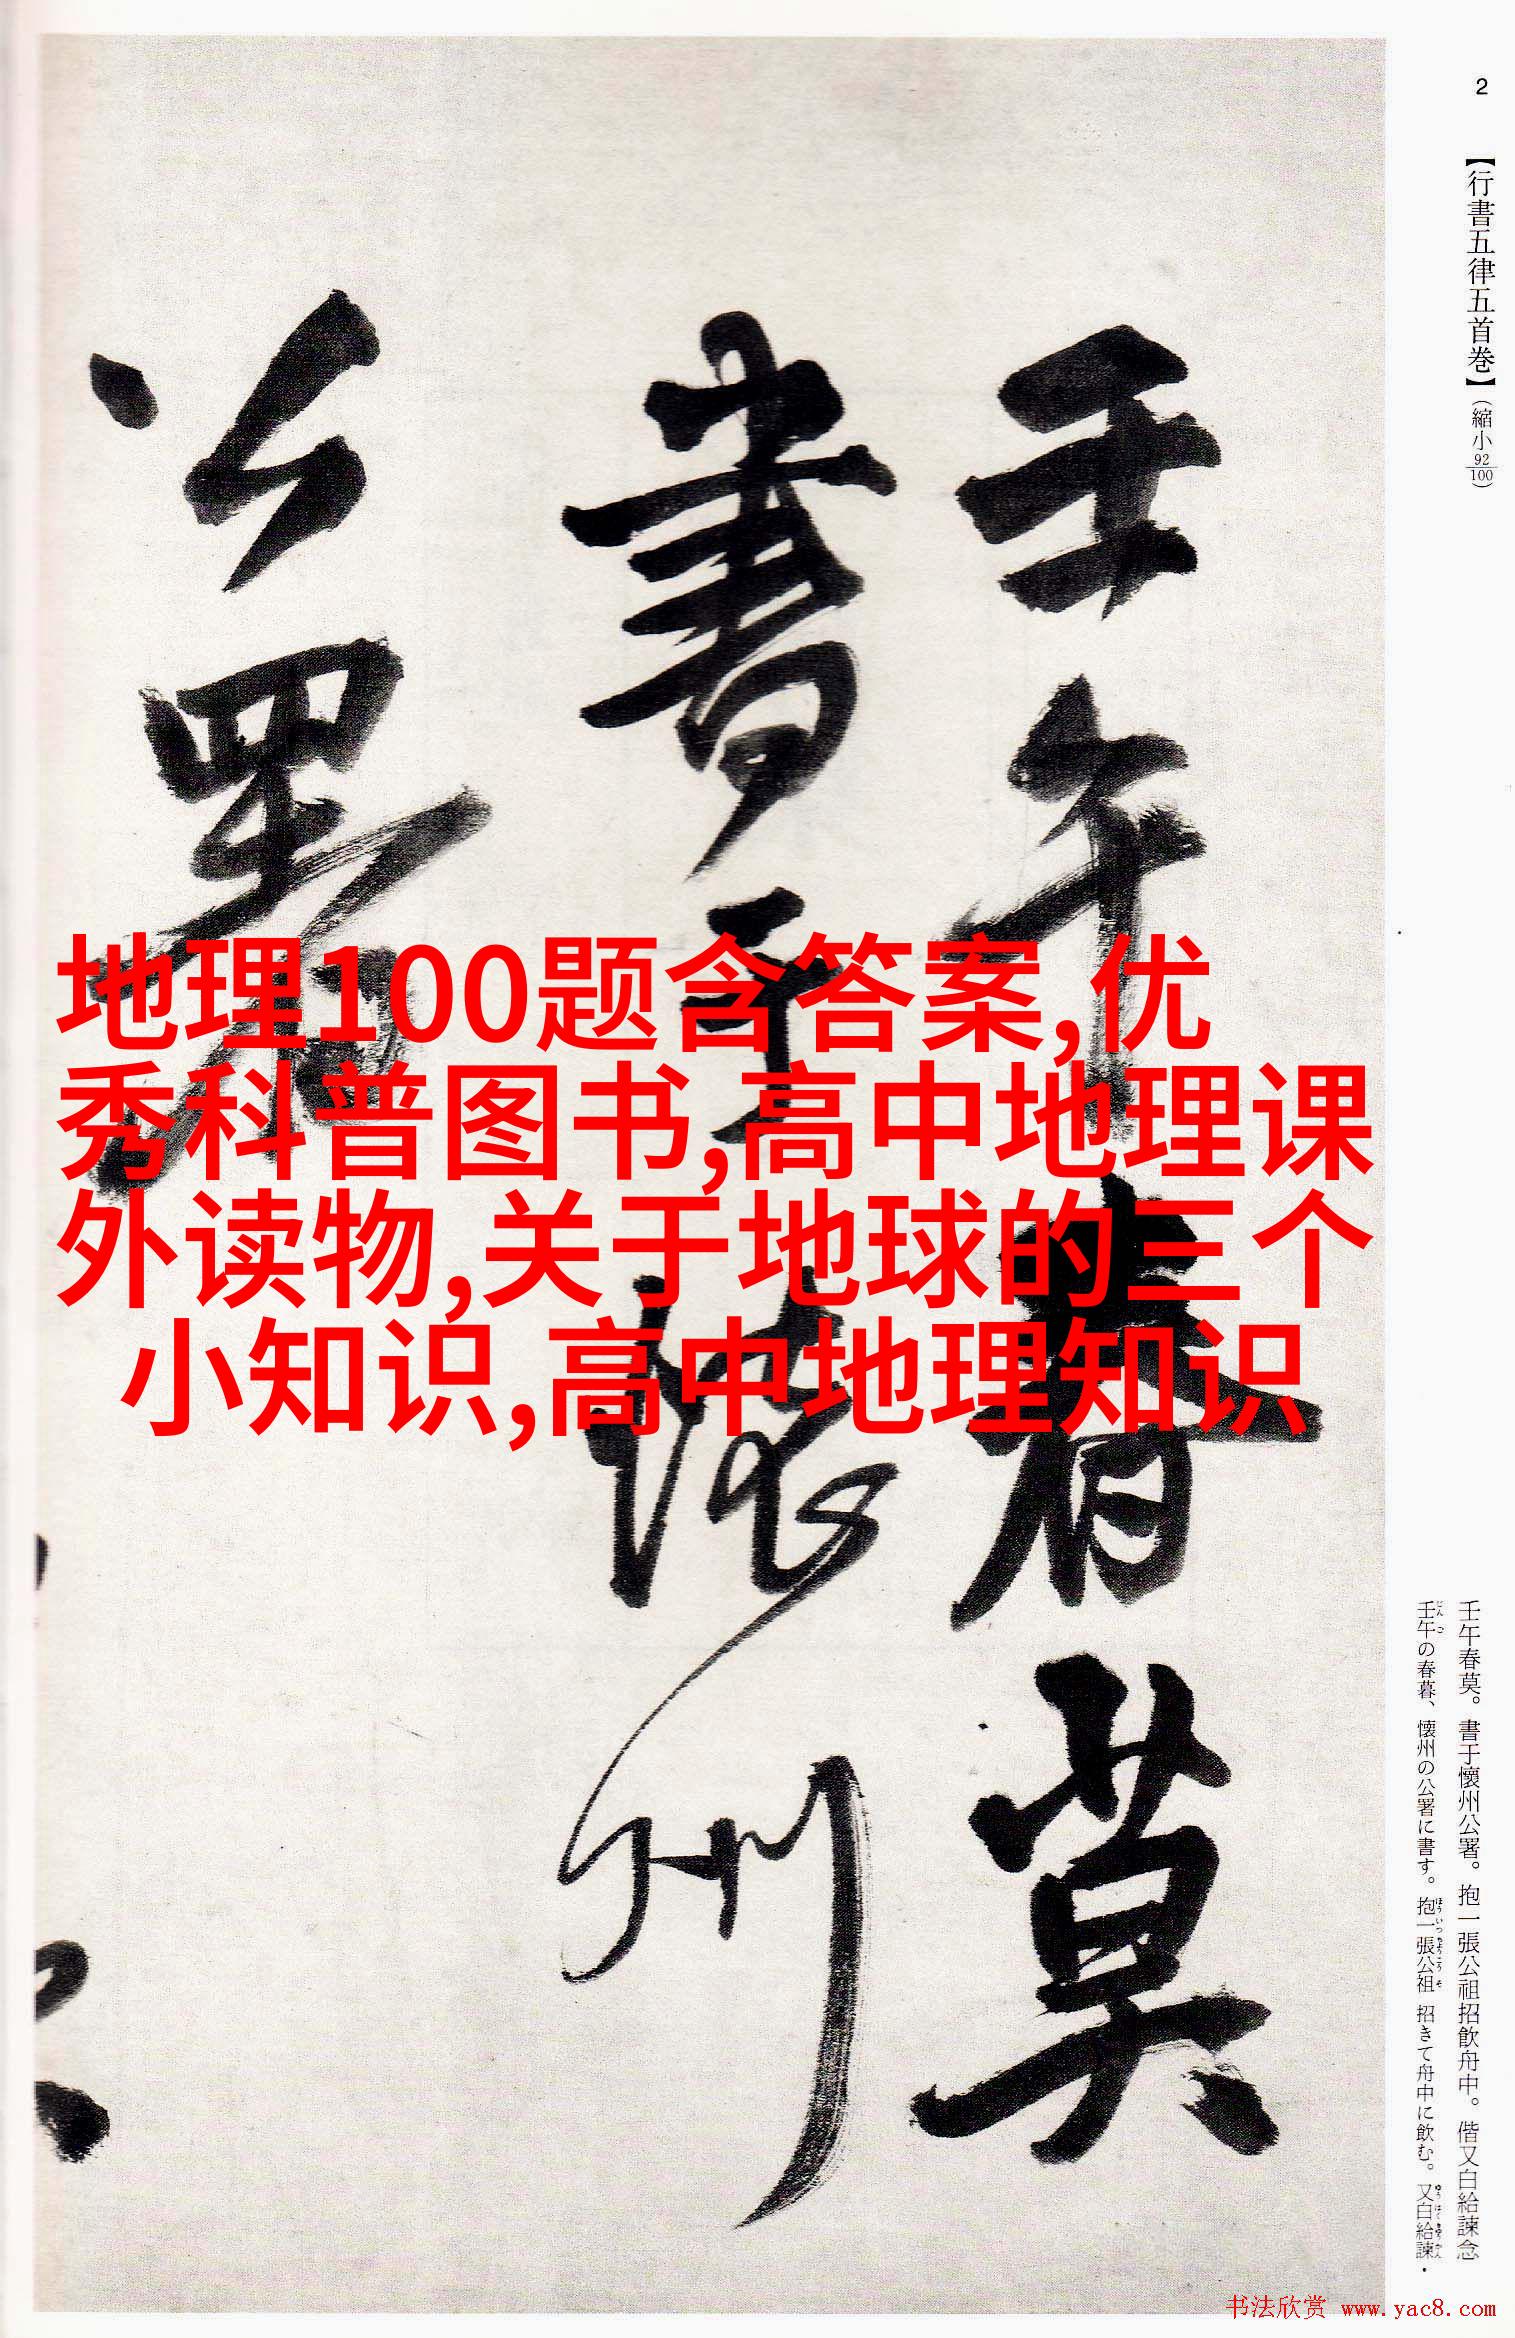 2
【行書五律五首巻】(縮小92/100)
壬午春莫
書于懷州
公署
地理100题含答案,优
秀科普图书,高中地理课
外读物,关于地球的三个
小知识,高中地理知识
壬午春莫。書于懷州公署。抱一張公祖招飲舟中。偕又白給諫念
壬午の春暮、懐州の公署に書す。抱一張公祖 招きて舟中に飲む。又白給諫・
书法欣赏 www.yac8.com